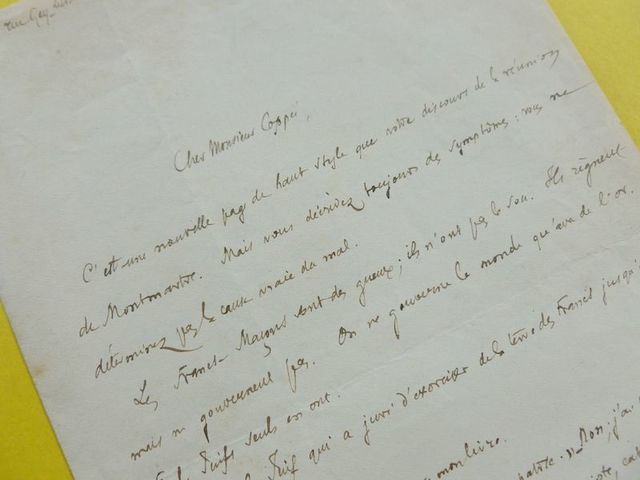 rue Gay-Lus
Cher Monsieur Coppée,
C'est une nouvelle page de haut style que votre discours de la réunion
de Montmartre. Mais vous décrivez toujours des symptômes ; vous ne
déterminez pas la cause vraie du mal.
Les Francs-Maçons sont des gueux ; ils n'ont pas le sou. Ils règnent
mais ne gouvernent pas. On ne gouverne le monde qu'avec de l'or.
Juifs seuls en ont.
Juif qui a juré d'exorciser de la terre des Francs jusqu'
mon livre.
Non, j'ai